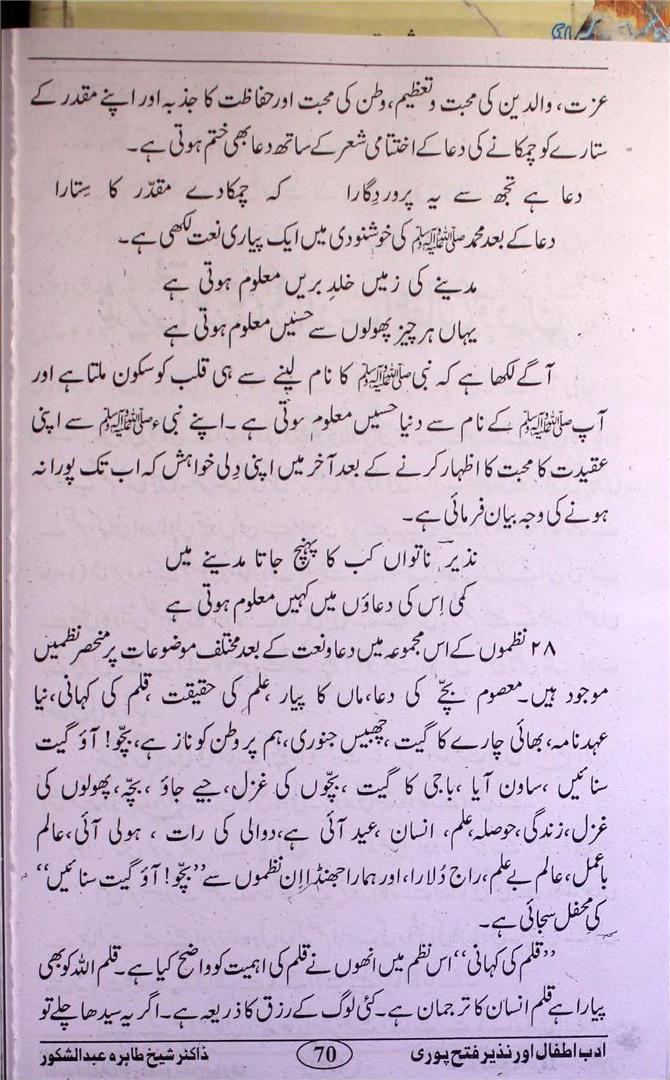 عزت، والدین کی محبت و تعظیم، وطن کی محبت اور حفاظت کا جذبہ اور اپنے مقدر کے
ستارے کو چمکانے کی دعا کے اختتامی شعر کے ساتھ دعا بھی ختم ہوتی ہے۔
دعا ہے تجھ سے یہ پروردگارا کہ چمکادے مقدّر کا سِتارا
دعا کے بعد محمد ﷺ کی خوشنودی میں ایک پیاری نعت لکھی ہے۔
مدینے کی زمیں خلدِ بریں معلوم ہوتی ہے
یہاں ہر چیز پھولوں سے حسیں معلوم ہوتی ہے
آگے لکھا ہے کہ نبی ﷺ کا نام لینے سے ہی قلب کو سکون ملتا ہے اور
آپ ﷺ کے نام سے دنیا حسیں معلوم ہوتی ہے۔ اپنے نبیء ﷺ سے اپنی
عقیدت کا محبت کا اظہار کرنے کے بعد آخر میں اپنی دِلی خواہش کہ اب تک پورا نہ
ہونے کی وجہ بیان فرمائی ہے۔
نذیرؔ ناتواں کب کا پہنچ جاتا مدینے میں
کمی اِس کی دعاؤں میں کہیں معلوم ہوتی ہے
۲۸ نظموں کے اس مجموعہ میں دعا و نعت کے بعد مختلف موضوعات پر منحصر نظمیں
موجود ہیں۔ معصوم بچّے کی دعا، ماں کا پیار، علم کی حقیقت، قلم کی کہانی، نیا
عہد نامہ، بھائی چارے کا گیت، چھبیس جنوری، ہم پر وطن کو ناز ہے، بچّو! آؤ گیت
سنائیں، ساون آیا، باجی کا گیت، بچّوں کی غزل، جیے جاؤ، بچّہ، پھولوں کی
غزل، زندگی، حوصلہ، علم، انسان، عید آئی ہے، دوالی کی رات، ہولی آئی، عالم
باعمل، عالم بے علم، راج دُلارا، اور ہمارا جھنڈا اِن نظموں سے ’’بچّو! آؤ گیت سنائیں‘‘
کی محفل سجائی ہے۔
’’قلم کی کہانی‘‘ اس نظم میں انھوں نے قلم کی اہمیت کو واضح کیا ہے۔ قلم اللہ کو بھی
پیارا ہے قلم انسان کا ترجمان ہے۔ کئی لوگ کے رزق کا ذریعہ ہے۔ اگر یہ سیدھا چلے تو
ادب اطفال اور نذیر فتح پوری 70 ڈاکٹر شیخ طاہرہ عبدالشکور